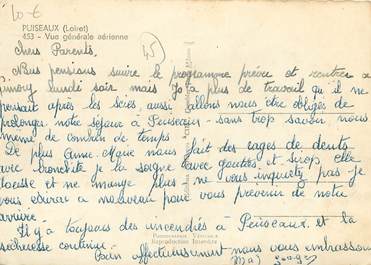 10-€
PUISEAUX (Loiret)
453 - Vue générale aérienne
45
Chers Parents,
Nous pensions suivre le programme prévu et rentrer a
lundi soir mais Jo a plus de travail qu'il ne
pensait après les scies, aussi allons nous être obligés de
prolonger notre sejour à Puiseaux - sans trop savoir nous
même de combien de temps.
De plus Anne-Marie nous fait des rages de dents
avec bronchite je la soigne avec gouttes et sirop elle
tousse et ne mange plus ne vous inquietez pas - je
vous ecrirai a nouveau pour vous prévenir de notre
arrivée.
Il y a toujours des incendies à Puiseaux et la
sécheresse continue.
Bien affectueusement nous vous embrassons
Reproduction Interdite